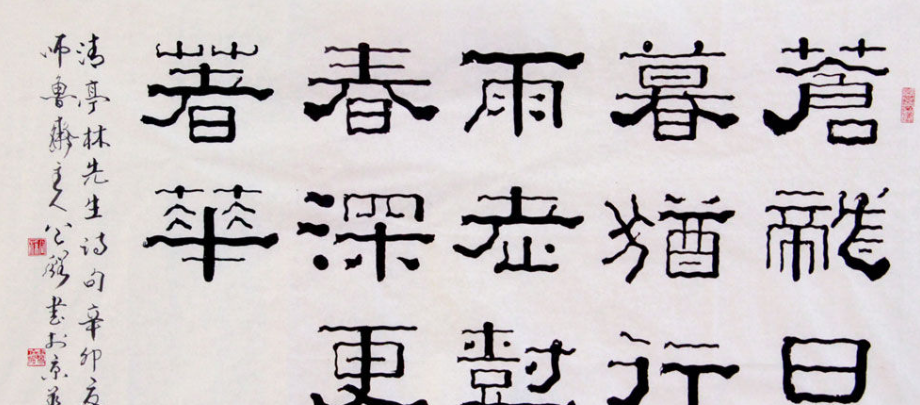 蒼龍日
暮猶行
雨老樹
春深更
著華
清亭林先生詩句辛卯夏
师魯齋主人公書於京